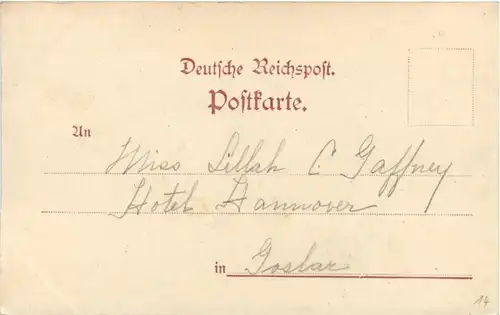 Deutsche Reichspost.
Postkarte.
An Miss Lillah C Gaffney
Hotel Hannover
in Goslar
14